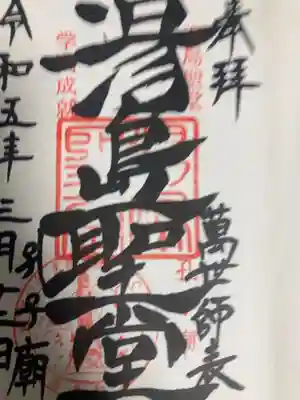 奉拝
萬世師表
湯島聖堂
孔子廟
令和五年三月十二日